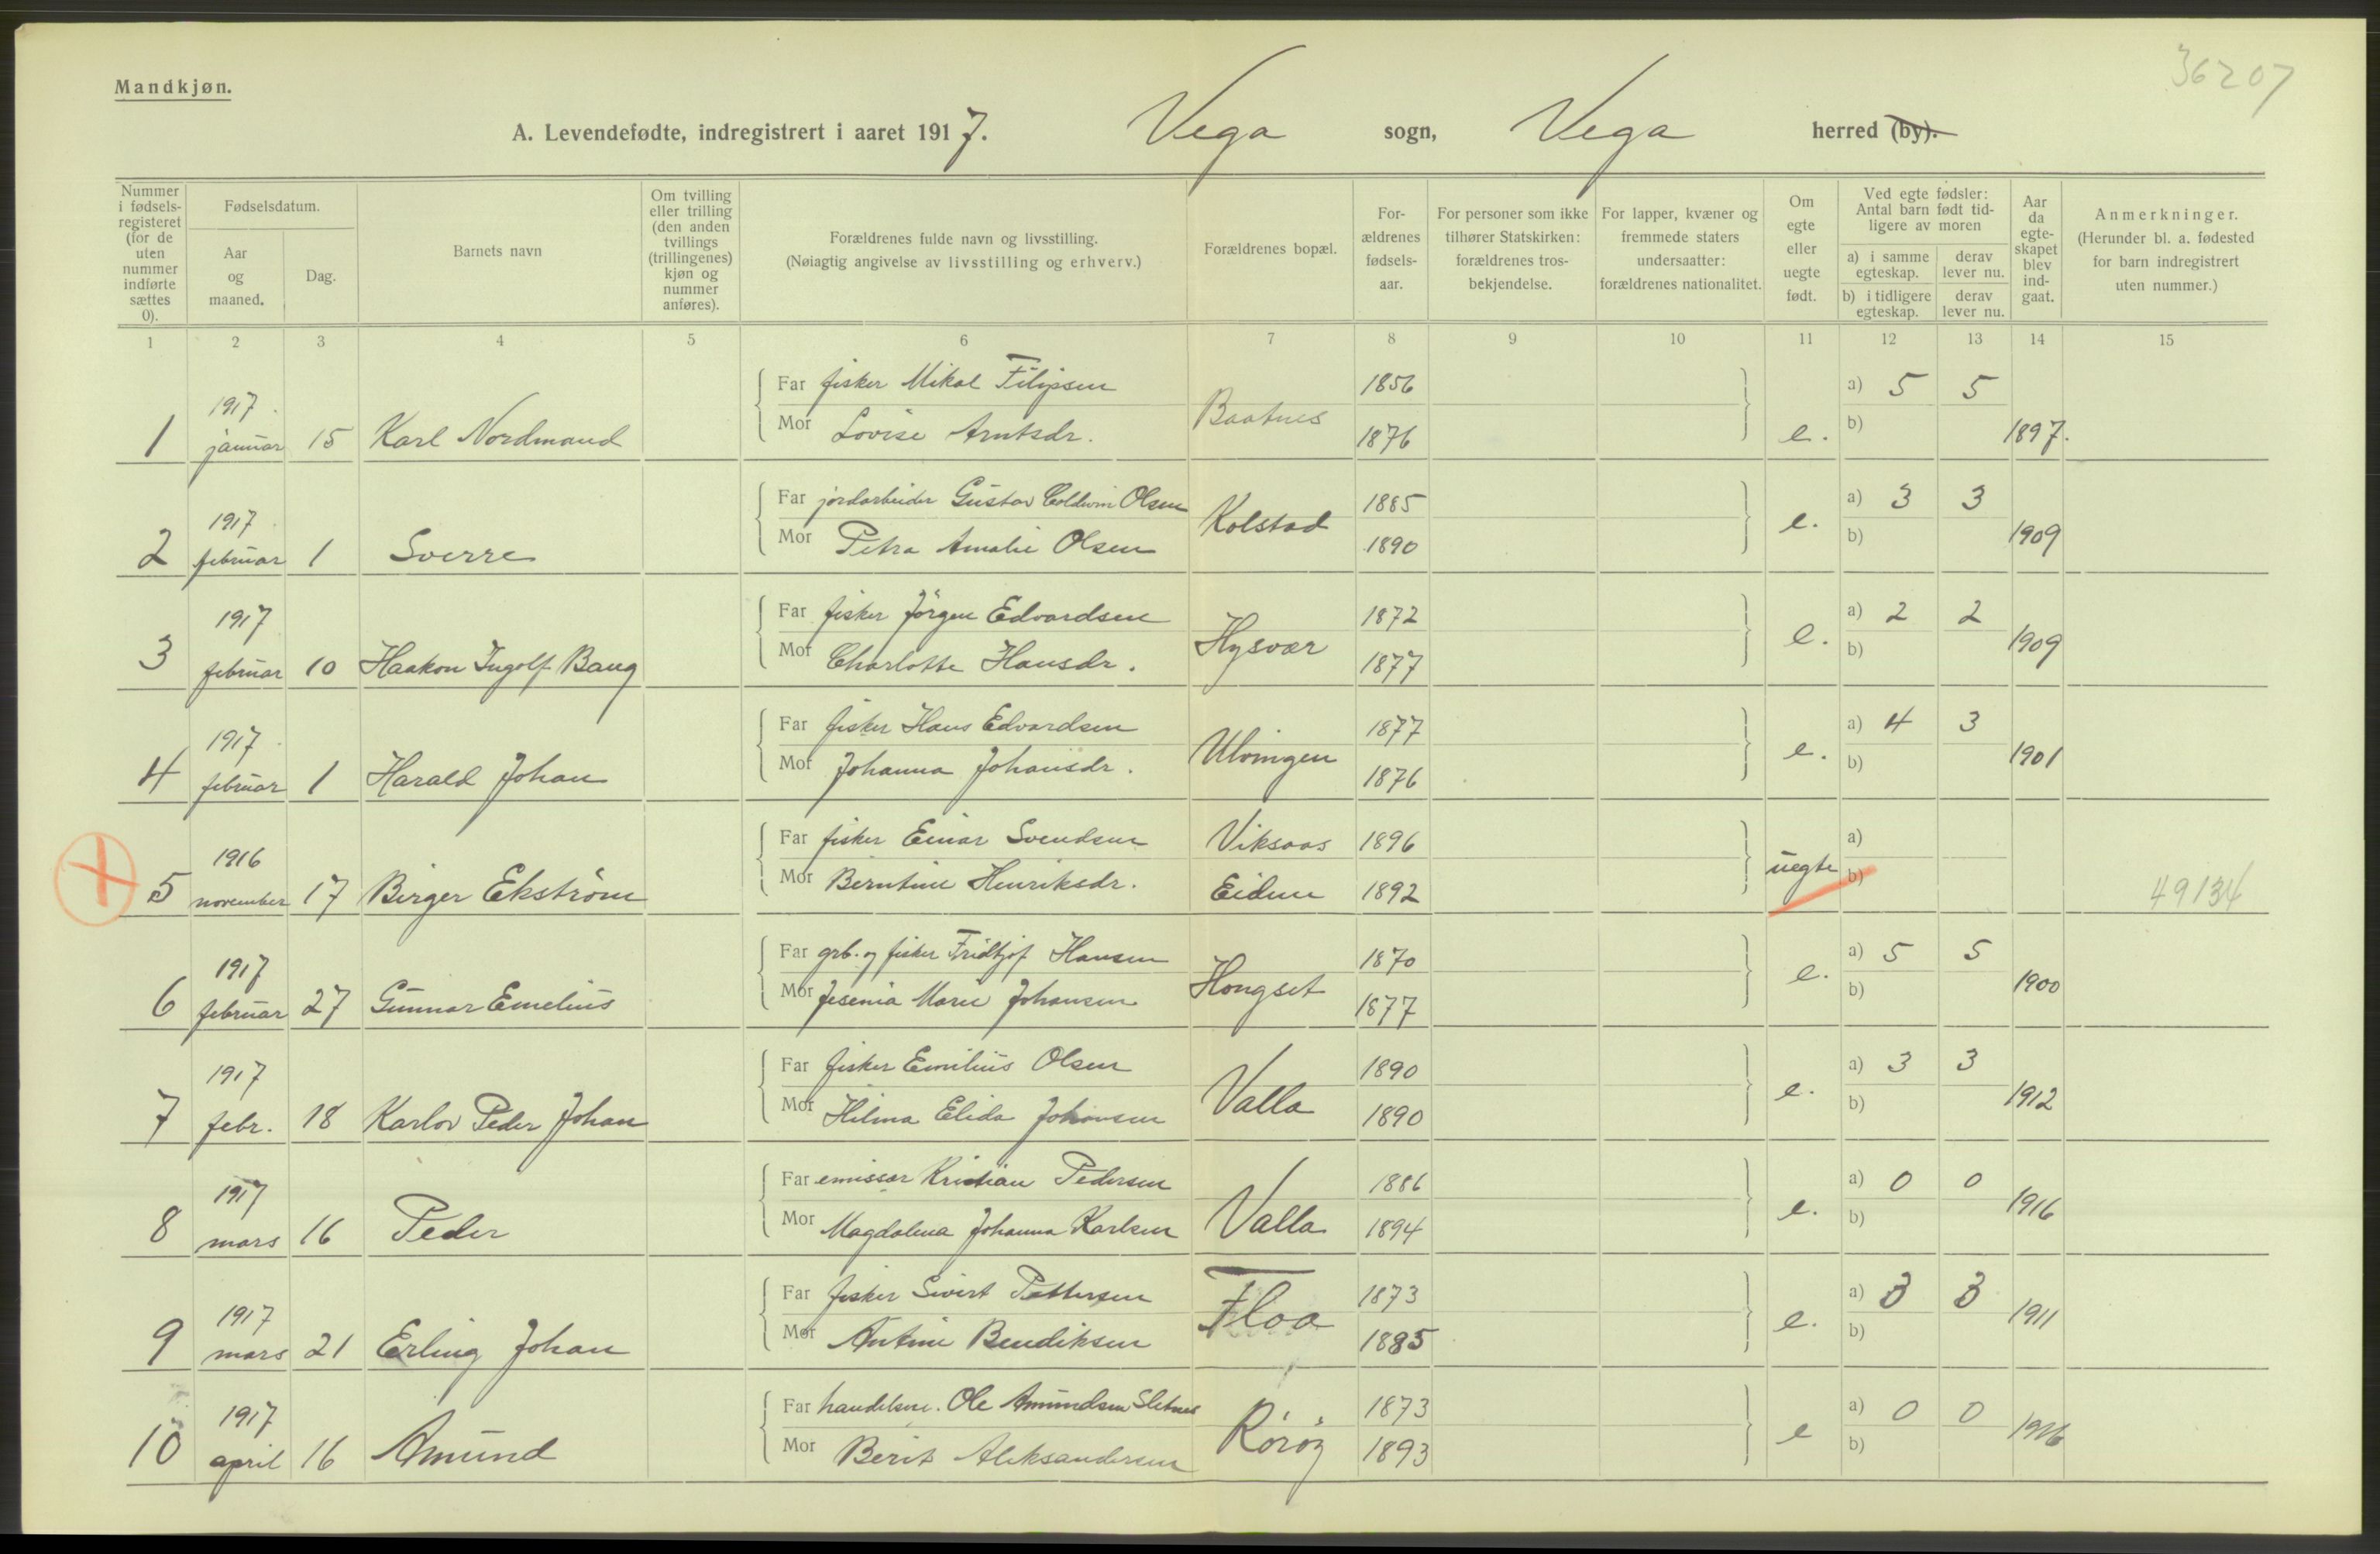 36207
Mandkjøn.
A. Levendefødte, indregistrert i aaret 1917. Vega sogn, Vega herred (by).
Nummer i fødselsregisteret (for de uten nummer indførte sættes 0).
Fødselsdatum.
Aar og maaned.
Dag.
Barnets navn
Om tvilling eller trilling (den anden tvillings (trillingenes) kjøn og nummer anføres).
Forældrenes fulde navn og livsstilling.
(Nøiagtig angivelse av livsstilling og erhverv.)
Forældrenes bopæl.
Forældrenes fødselsaar.
For personer som ikke tilhører Statskirken: forældrenes trosbekjendelse.
For lapper, kvæner og fremmede staters undersaatter: forældrenes nationalitet.
Om egte eller uegte født.
Ved egte fødsler: Antal barn født tidligere av moren
a) i samme egteskap. derav lever nu.
b) i tidligere egteskap. derav lever nu.
Aar da egteskapet blev indgaat.
Anmerkninger.
(Herunder bl. a. fødested for barn indregistrert uten nummer.)
1 2 3 4 5 6 7 8 9 10 11 12 13 14 15
1 1917 januar 15 Karl Nordmand Far fisker Mikal Filipsen Baatnes 1856 e. a) 5 5 1897.
Mor Lovise Arntsdr. 1876 b)
2 1917 februar 1 Sverre Far jordarbeider Gustav Coldevin Olsen Kolstad 1885 e. a) 3 3 1909
Mor Petra Amalie Olsen 1890 b)
3 1917 februar 10 Haakon Ingolf Baug Far fisker Jörgen Edvardsen Hysvær 1872 e. a) 2 2 1909
Mor Charlotte Hansdr. 1877 b)
4 1917 februar 1 Harald Johan Far fisker Hans Edvardsen Ulvingen 1877 e. a) 4 3 1901
Mor Johanna Johansdr. 1876 b)
5 1916 november 17 Birger Ekström Far fisker Einar Svendsen Viksaas 1896 uegte a)
Mor Berntine Henriksdr. Eidem 1892 b) 49134
6 1917 februar 27 Gunnar Emelius Far grb. og fisker Fridtjof Hansen Hongset 1870 e. a) 5 5 1900
Mor Jesenia Marie Johansen 1877 b)
7 1917 febr. 18 Karlov Peder Johan Far fisker Emilius Olsen Valla 1890 e. a) 3 3 1912
Mor Hilma Elida Johansen 1890 b)
8 1917 mars 16 Peder Far emissær Kristian Pedersen Valla 1886 e. a) 0 0 1916
Mor Magdalena Johanna Karlsen 1894 b)
9 1917 mars 21 Erling Johan Far fisker Sivert Pettersen Floa 1873 e. a) 3 3 1911
Mor Antine Bendiksen 1885 b)
10 1917 april 16 Amund Far handelsm. Ole Amundsen Sletnes Rörög 1873 e a) 0 0 1916
Mor Berit Aleksandersen 1893 b)